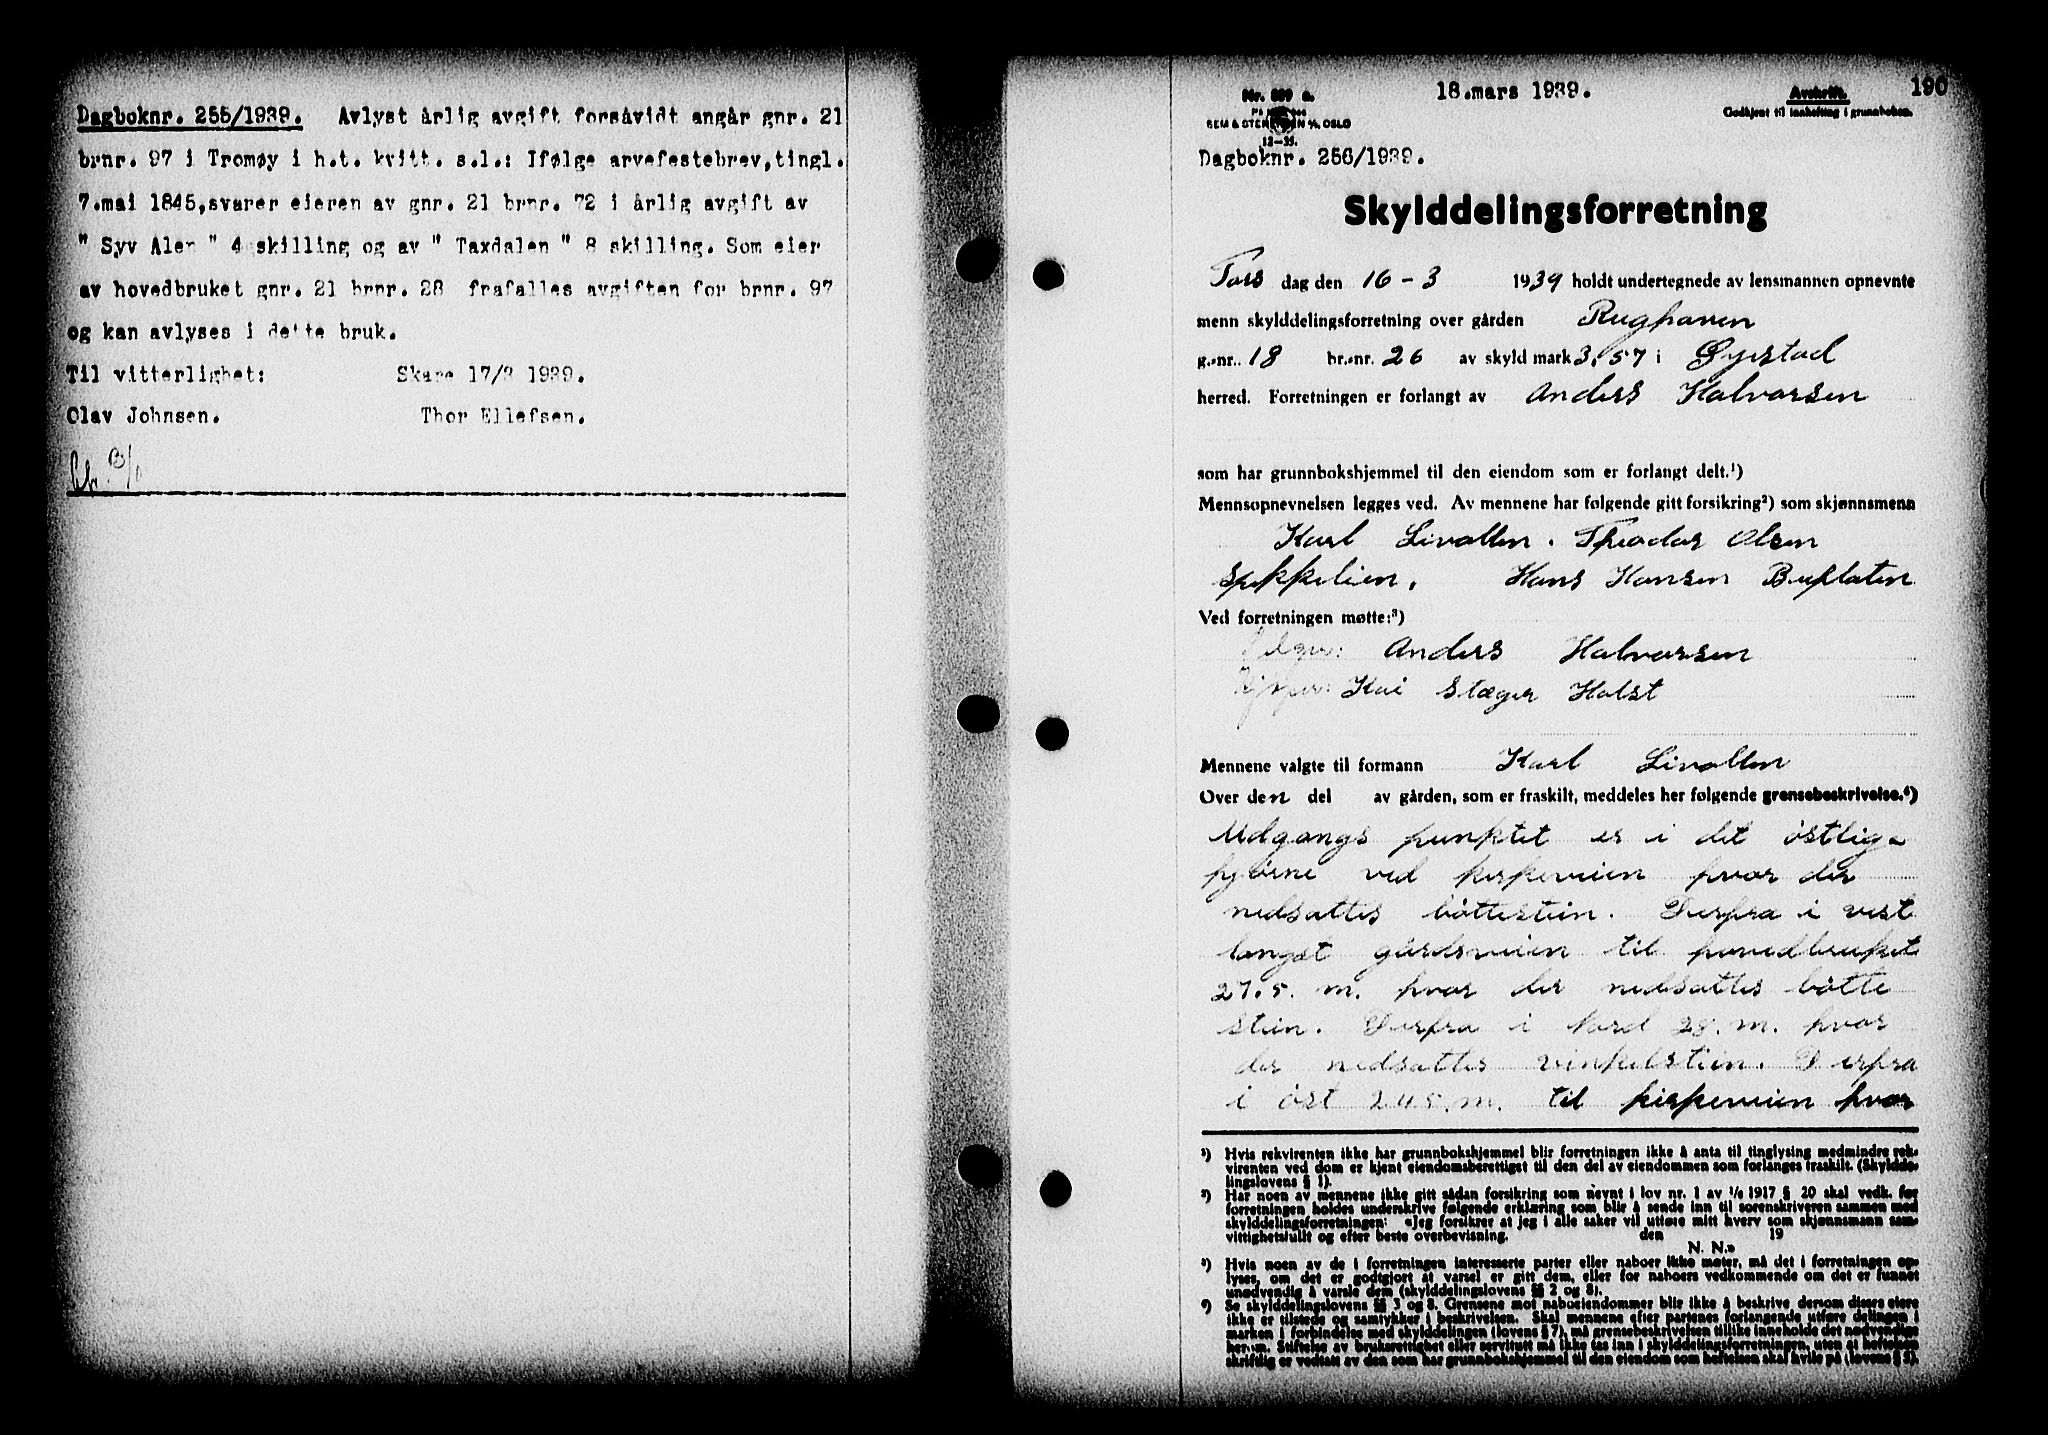 Dagboknr. 255/1939. Avlyst årlig avgift forsåvidt angår gnr. 21
brnr. 97 i Tromøy i h.t. kvitt. s.l.: Ifølge arvefestebrev, tingl.
7.mai 1845, svarer eieren av gnr. 21 brnr. 72 i årlig avgift av
" Syv Alen " 4 skilling og av " Taxdalen " 8 skilling. Som eier
av hovedbruket gnr. 21 brnr. 28 frafalles avgiften for brnr. 97
og kan avlyses i dette bruk.
Til vitterlighet: Skare 17/3 1939.
Olav Johnsen. Thor Ellefsen.
190
18.mars 1939.
Avskrift.
Godkjent til innhefting i grunnboken.
SEM & STENERSEN A/S, OSLO
12-35.
Dagboknr. 256/1939.
Skylddelingsforretning
Tors dag den 16 - 3 1939 holdt undertegnede av lensmannen opnevnte
menn skylddelingsforretning over gården Rughaven
g.-nr. 18 br.-nr. 26 av skyld mark 3,57 i Øyestad
herred. Forretningen er forlangt av Anders Halvorsen
som har grunnbokshjemmel til den eiendom som er forlangt delt.¹)
Mennsopnevnelsen legges ved. Av mennene har følgende gitt forsikring²) som skjønnsmenn
Karl Livollen. Theodor Olsen
Hans Hansen
Ved forretningen møtte:³)
Selger: Anders Halvorsen
Kjøper: Kai Stæger Holst
Mennene valgte til formann Karl Livollen
Over den del av gården, som er fraskilt, meddeles her følgende grensebeskrivelse.⁴)
Udgangs punktet er i det østlige
hjørne ved kirkeveien hvor der
nedsattes bøttestein. Derfra i vest
langst gårdsveien til hovedbruket
27.5. m. hvor der nedsattes bøtte
stein. Derfra i Nord 28. m. hvor
der nedsattes vinkelstein. Derfra
i øst 24.5. m. til kirkeveien hvor
¹) Hvis rekvirenten ikke har grunnbokshjemmel blir forretningen ikke å anta til tinglysing medmindre rek-
virenten ved dom er kjent eiendomsberettiget til den del av eiendommen som forlanges fraskilt. (Skyldde-
lingslovens § 1).
²) Har noen av mennene ikke gitt sådan forsikring som nevnt i lov nr. 1 av 1/6 1917 § 20 skal vedk. før
forretningen holdes underskrive følgende erklæring som blir å sende inn til sorenskriveren sammen med
skylddelingsforretningen: «Jeg forsikrer at jeg i alle saker vil utføre mitt hverv som skjønnsmann sam-
vittighetsfullt og efter beste overbevisning. den 19
N. N.»
³) Hvis noen av de i forretningen interesserte parter eller naboer ikke møter, må det i forretningen op-
lyses, om det er godtgjort at varsel er gitt dem, eller for naboers vedkommende om det er funnet
unødvendig å varsle dem (skylddelingslovens §§ 2 og 8).
⁴) Se skylddelingslovens §§ 3 og 8. Grensene mot naboeiendommer blir ikke å beskrive dersom disses eiere
ikke er tilstede og samtykker i beskrivelsen. Skal mennene efter partenes forlangende utføre delingen i
marken i forbindelse med skylddelingen (lovens § 7), må grensebeskrivelsen tillike inneholde det nødvendige
herom. Stiftelse av bruksrettighet eller servitutt må ikke tas inn i skylddelingsforretningen, uten at heftelsen
skriftlig er vedtatt av den som har grunnbokshjemmel til den eiendom som heftelsen skal hvile på (lovens § 5).